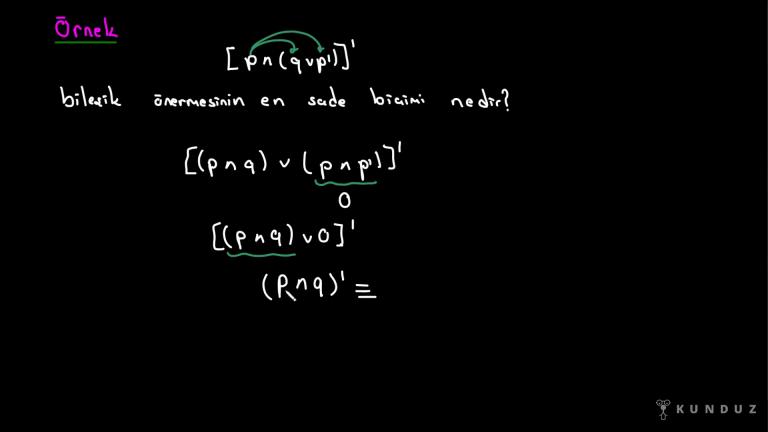 Örnek
[p∧(q∨p')]'
bileşik önermesinin en sade biçimi nedir?
[(p∧q)∨(p∧p')]'
0
[(p∧q)∨0]'
(p∧q)' ≡
KUNDUZ